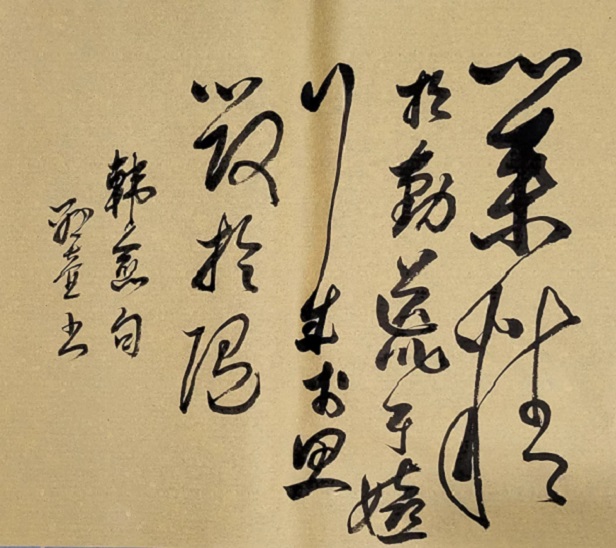 業精
於勤荒于嬉
行成於思
毀於隨
韓愈句
书